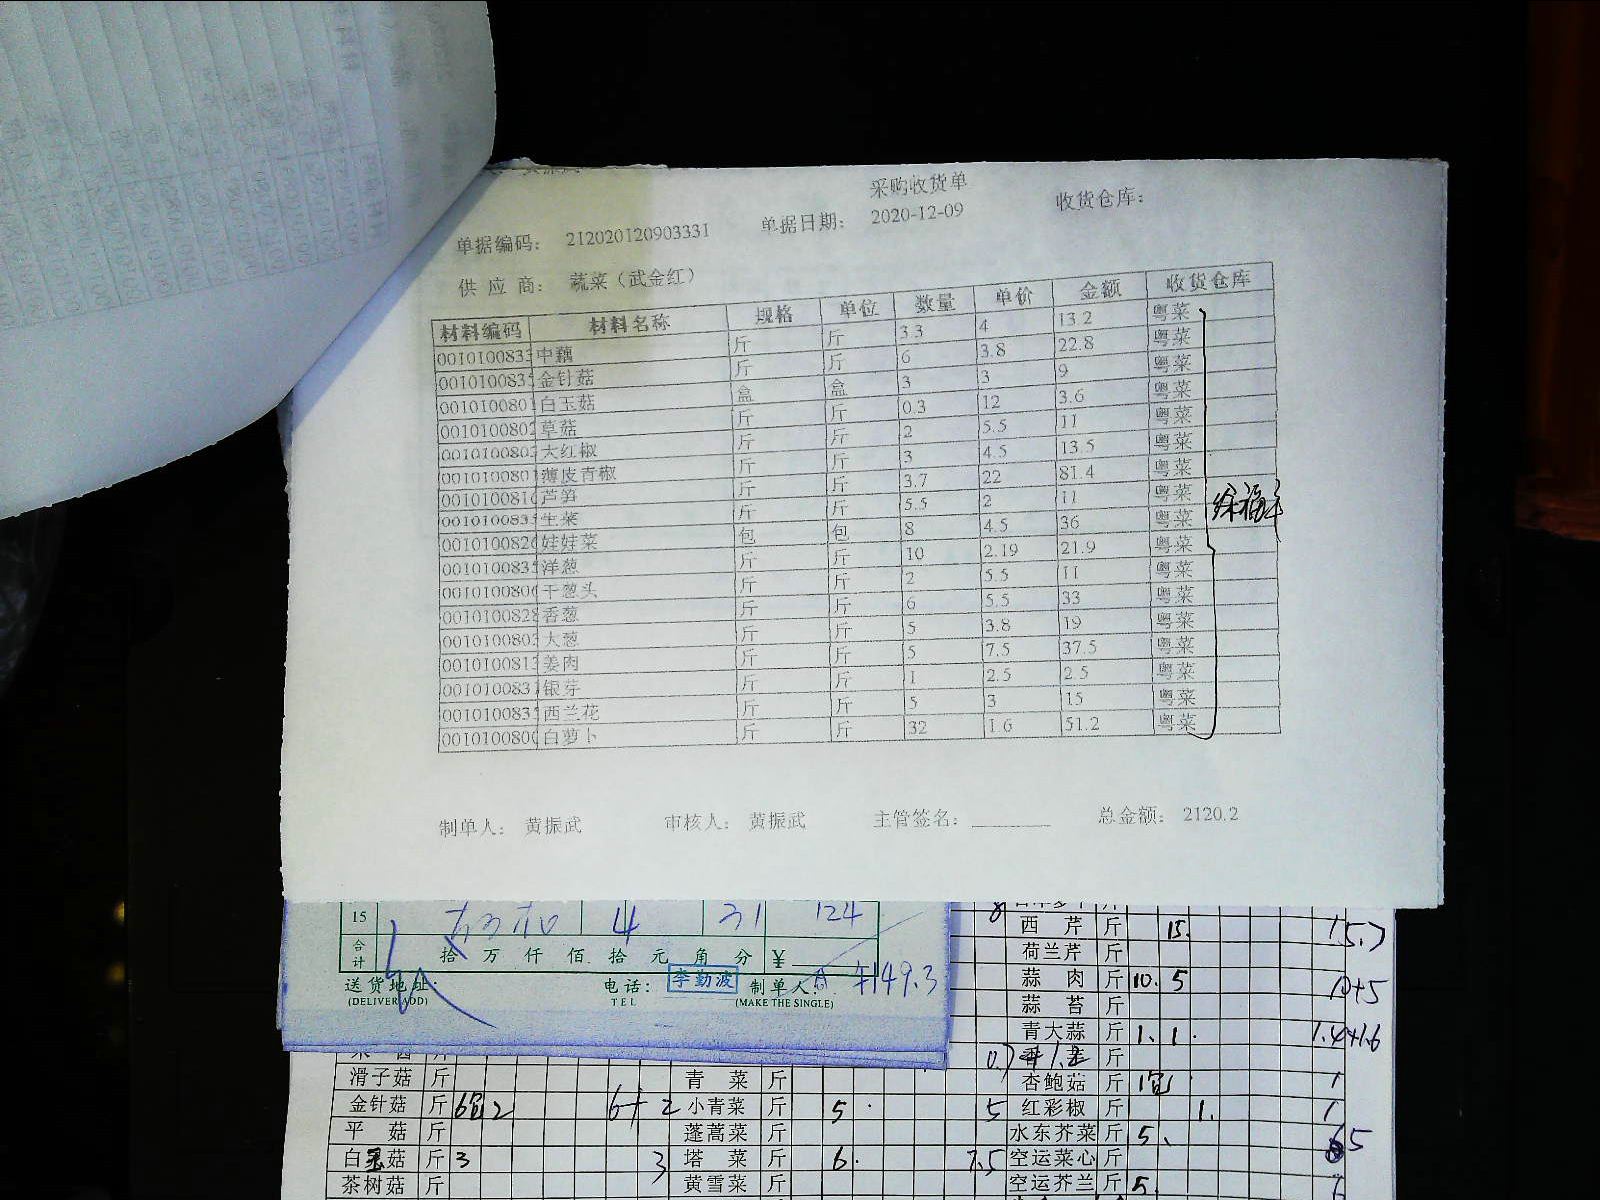 采购收货单
单据编码： 212020120903331 单据日期： 2020-12-09 收货仓库：
供 应 商： 蔬菜（武金红）
材料编码 材料名称 规格 单位 数量 单价 金额 收货仓库
0010100833 中藕 斤 斤 3.3 4 13.2 粤菜
001010083 金针菇 斤 斤 6 3.8 22.8 粤菜
001010080 白玉菇 盒 盒 3 3 9 粤菜
0010100802 草菇 斤 斤 0.3 12 3.6 粤菜
001010080 大红椒 斤 斤 2 5.5 11 粤菜
001010080 薄皮青椒 斤 斤 3 4.5 13.5 粤菜
001010081 芦笋 斤 斤 3.7 22 81.4 粤菜
001010083 生菜 斤 斤 5.5 2 11 粤菜
001010082 娃娃菜 包 包 8 4.5 36 粤菜
001010083 洋葱 斤 斤 10 2.19 21.9 粤菜
001010080 干葱头 斤 斤 2 5.5 11 粤菜
0010100828 香葱 斤 斤 6 5.5 33 粤菜
001010080 大葱 斤 斤 5 3.8 19 粤菜
001010081 姜肉 斤 斤 5 7.5 37.5 粤菜
001010083 银芽 斤 斤 1 2.5 2.5 粤菜
001010083 西兰花 斤 斤 5 3 15 粤菜
001010080 白萝卜 斤 斤 32 1.6 51.2 粤菜
制单人： 黄振武 审核人： 黄振武 主管签名： 总金额： 2120.2
15 4 31 124
合计 拾 万 仟 佰 拾 元 角 分 ¥
送货地址： 电话： 李勤波 制单人： ¥149.3
(DELIVER ADD) TEL (MAKE THE SINGLE)
西 芹 斤 15. 15.7
荷兰芹 斤
蒜 肉 斤 10. 5 10+5
蒜 苔 斤
青大蒜 斤 1. 1. 1.4+1.6
斤
滑子菇 斤 青 菜 斤 杏鲍菇 斤 1
金针菇 斤 2 6+2 小青菜 斤 5 5 红彩椒 斤 1. 1
平 菇 斤 蓬蒿菜 斤 水东芥菜 斤 5
白玉菇 斤 3 3 塔 菜 斤 6. 7.5 空运菜心 斤
茶树菇 斤 黄雪菜 斤 空运芥兰 斤 5